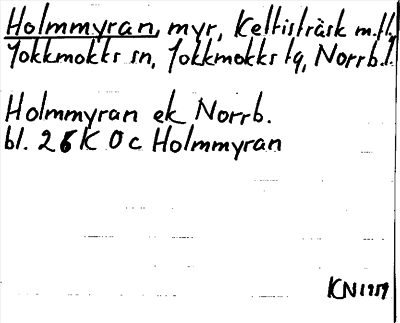 Holmmyran, myr, Keltisträsk m.fl,
Jokkmokks sn, Jokkmokks tg, Norrb.l.
Holmmyran ek Norrb.
bl. 26K 0c Holmmyran
KN1959